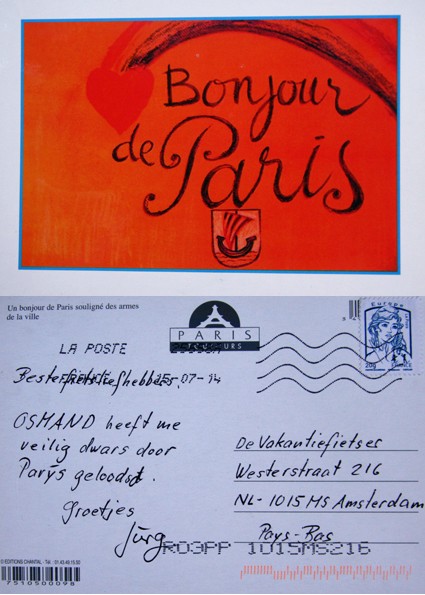 Bonjour
de Paris
Un bonjour de Paris souligné des armes
de la ville
PARIS
LA POSTE
Beste fietsliefhebbers.
07-14
OSMAND heeft me
veilig dwars door
Parijs geloodst.
Groetjes
Jürg
Europe
20g
FRANCE
De Vakantiefietser
Westerstraat 216
NL-1015 MS Amsterdam
Pays-Bas
RO3PP 1015MS216
EDITIONS CHANTAL - Tél. : 01.43.49.15.50
7510500098